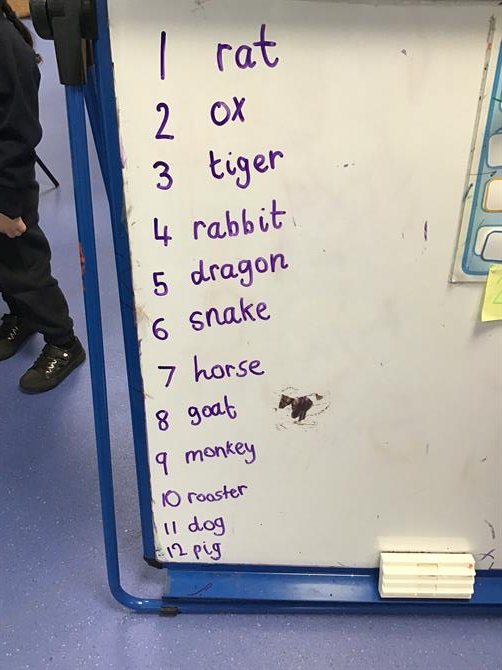 1 rat
2 ox
3 tiger
4 rabbit
5 dragon
6 snake
7 horse
8 goat
9 monkey
10 rooster
11 dog
12 pig